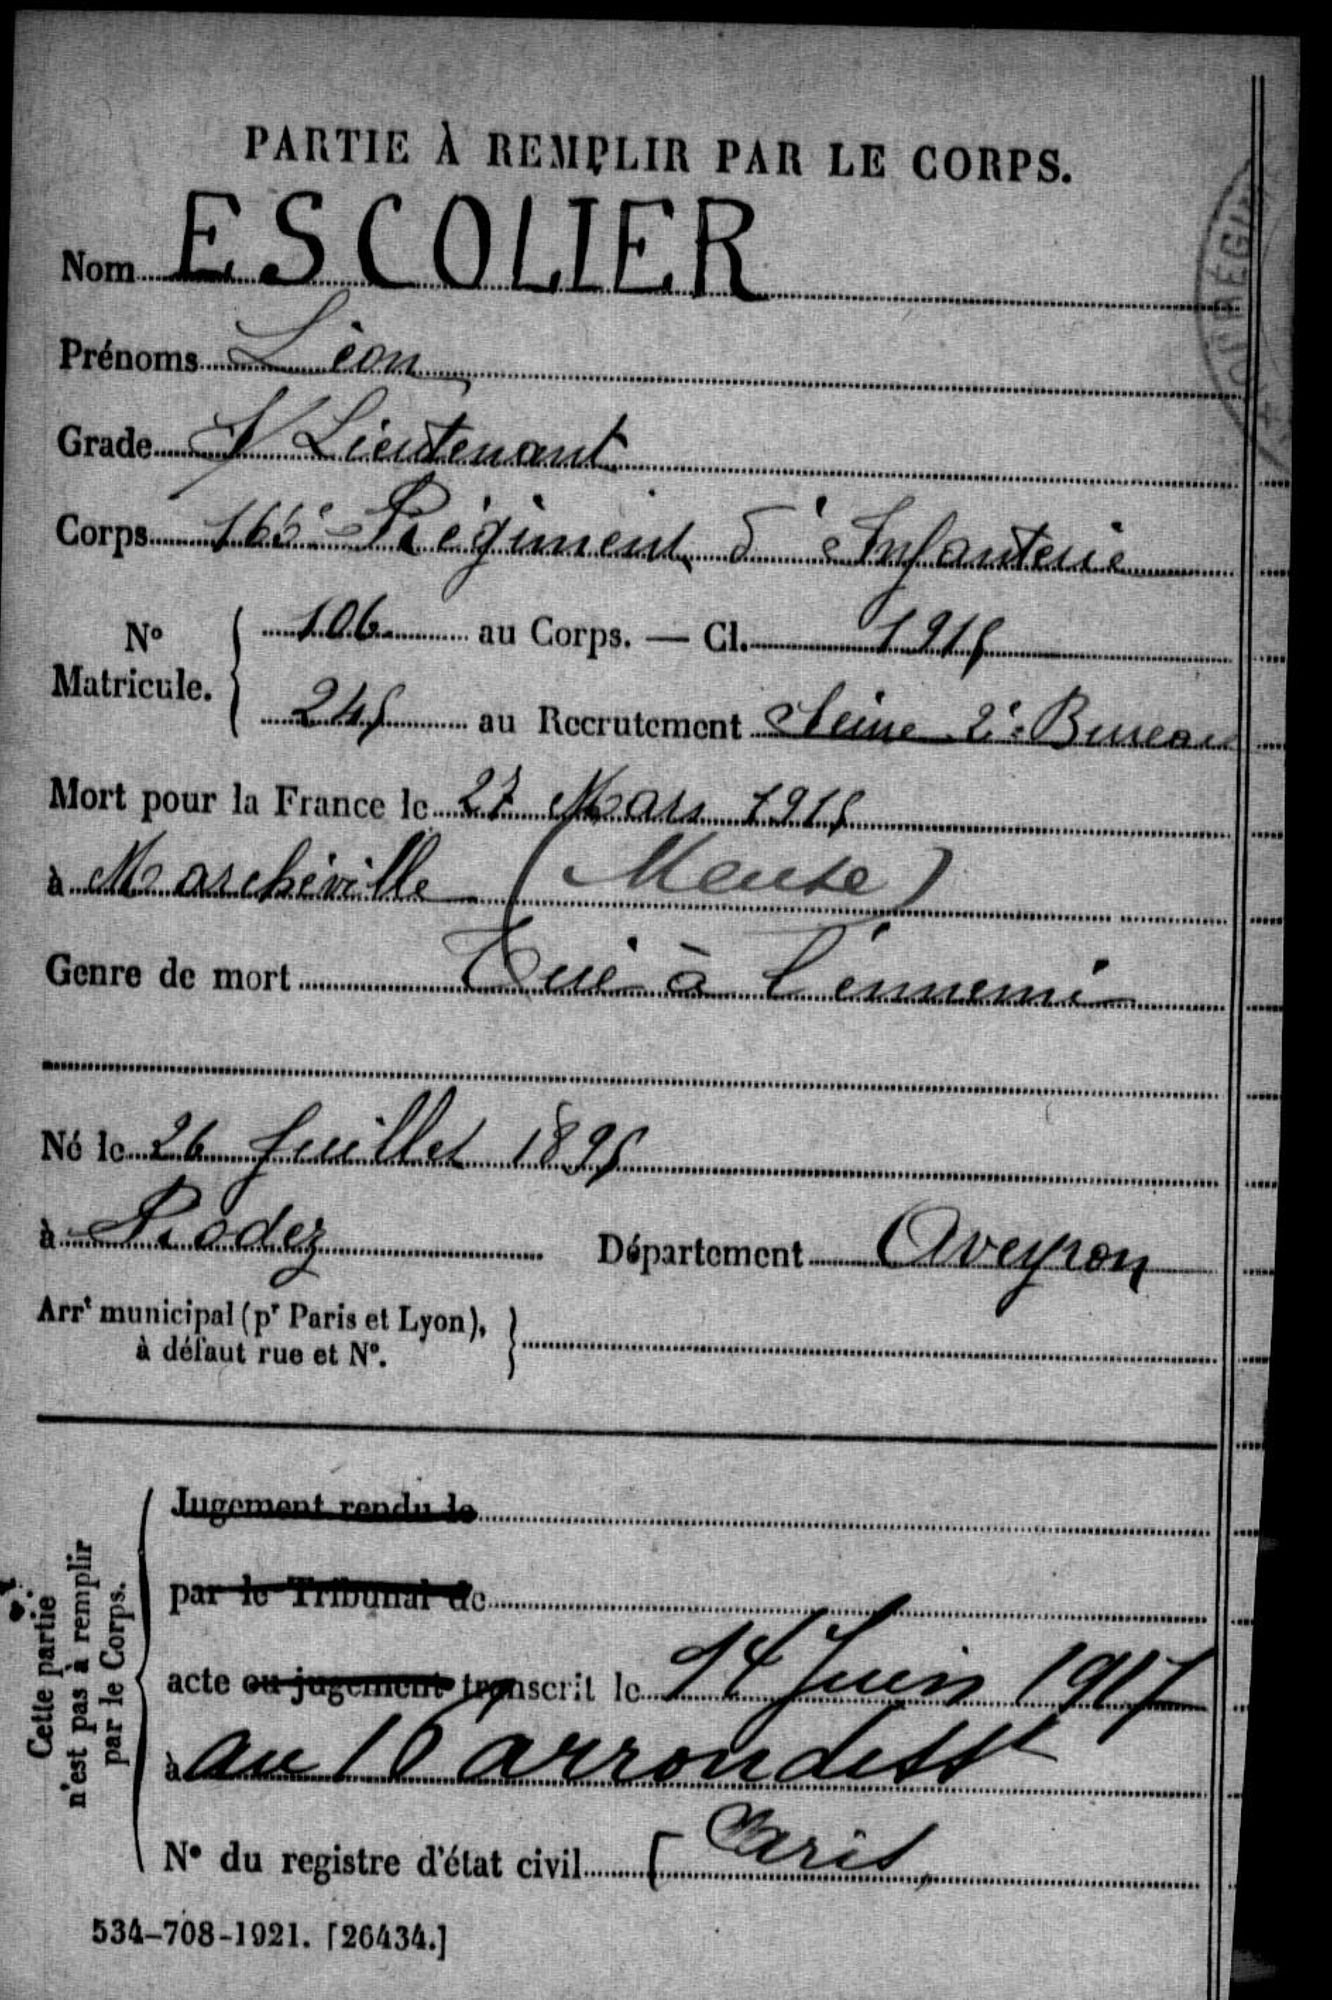 PARTIE À REMPLIR PAR LE CORPS.
Nom ESCOLIER
Prénoms Léon
Grade S/Lieutenant
Corps 166e Régiment d'Infanterie
No Matricule. 106 au Corps. — Cl. 1915
245 au Recrutement Seine 2e Bureau
Mort pour la France le 27 Mars 1915
à Marchéville (Meuse)
Genre de mort Tué à l'ennemi
Né le 26 Juillet 1895
à Rodez Département Aveyron
Arrt municipal (pr Paris et Lyon),
à défaut rue et No.
Cette partie
n'est pas à remplir
par le Corps.
Jugement rendu le
par le Tribunal de
acte ou jugement transcrit le 14 Juin 1917
à au arrondisst
No du registre d'état civil Paris
534-708-1921. [26434.]